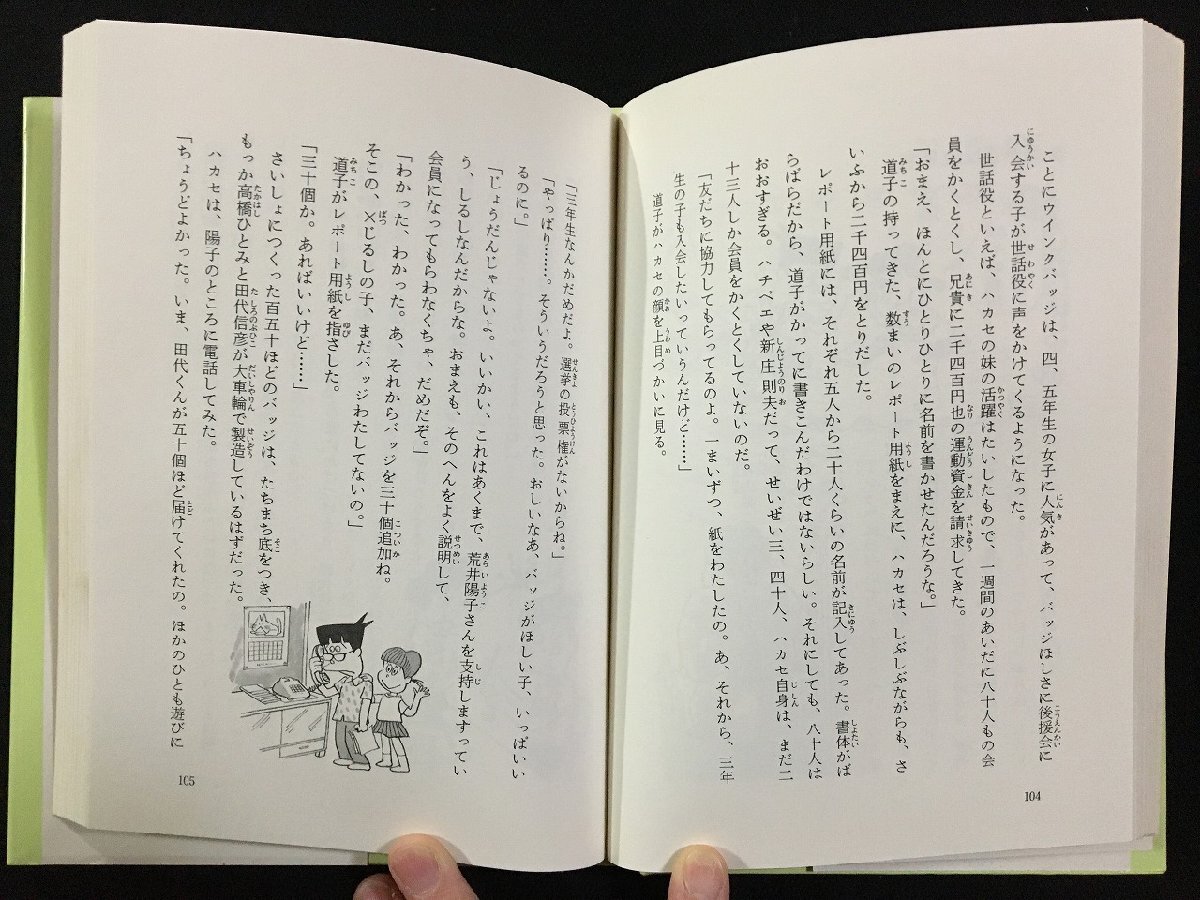 ことにウインクバッジは、四、五年生の女子に人気があって、バッジほしさに後援会に
入会する子が世話役に声をかけてくるようになった。
世話役といえば、ハカセの妹の活躍はたいしたもので、一週間のあいだに八十人もの会
員をかくとくし、兄貴に二千四百円也の運動資金を請求してきた。
「おまえ、ほんとにひとりひとりに名前を書かせたんだろうな。」
道子の持ってきた、数まいのレポート用紙をまえに、ハカセは、しぶしぶながらも、さ
いふから二千四百円をとりだした。
レポート用紙には、それぞれ五人から二十人くらいの名前が記入してあった。書体がば
らばらだから、道子がかってに書きこんだわけではないらしい。それにしても、八十人は
おおすぎる。ハチベエや新庄則夫だって、せいぜい三、四十人、ハカセ自身は、まだ二
十三人しか会員をかくとくしていないのだ。
「友だちに協力してもらってるのよ。一まいずつ、紙をわたしたの。あ、それから、三年
生の子も入会したいっていうんだけど……」
道子がハカセの顔を上目づかいに見る。
104
「三年生なんかだめだよ。選挙の投票権がないからね。」
「やっぱり……。そういうだろうと思った。おしいなあ、バッジがほしい子、いっぱいい
るのに。」
「じょうだんじゃないよ。いいかい、これはあくまで、荒井陽子さんを支持しますってい
う、しるしなんだからな。おまえも、そのへんをよく説明して、
会員になってもらわなくちゃ、だめだぞ。」
「わかった、わかった。あ、それからバッジを三十個追加ね。
そこの、×じるしの子、まだバッジわたしてないの。」
道子がレポート用紙を指さした。
「三十個か。あればいいけど……」
さいしょにつくった百五十ほどのバッジは、たちまち底をつき、
もっか高橋ひとみと田代信彦が大車輪で製造しているはずだった。
ハカセは、陽子のところに電話してみた。
「ちょうどよかった。いま、田代くんが五十個ほど届けてくれたの。ほかのひとも遊びに
105